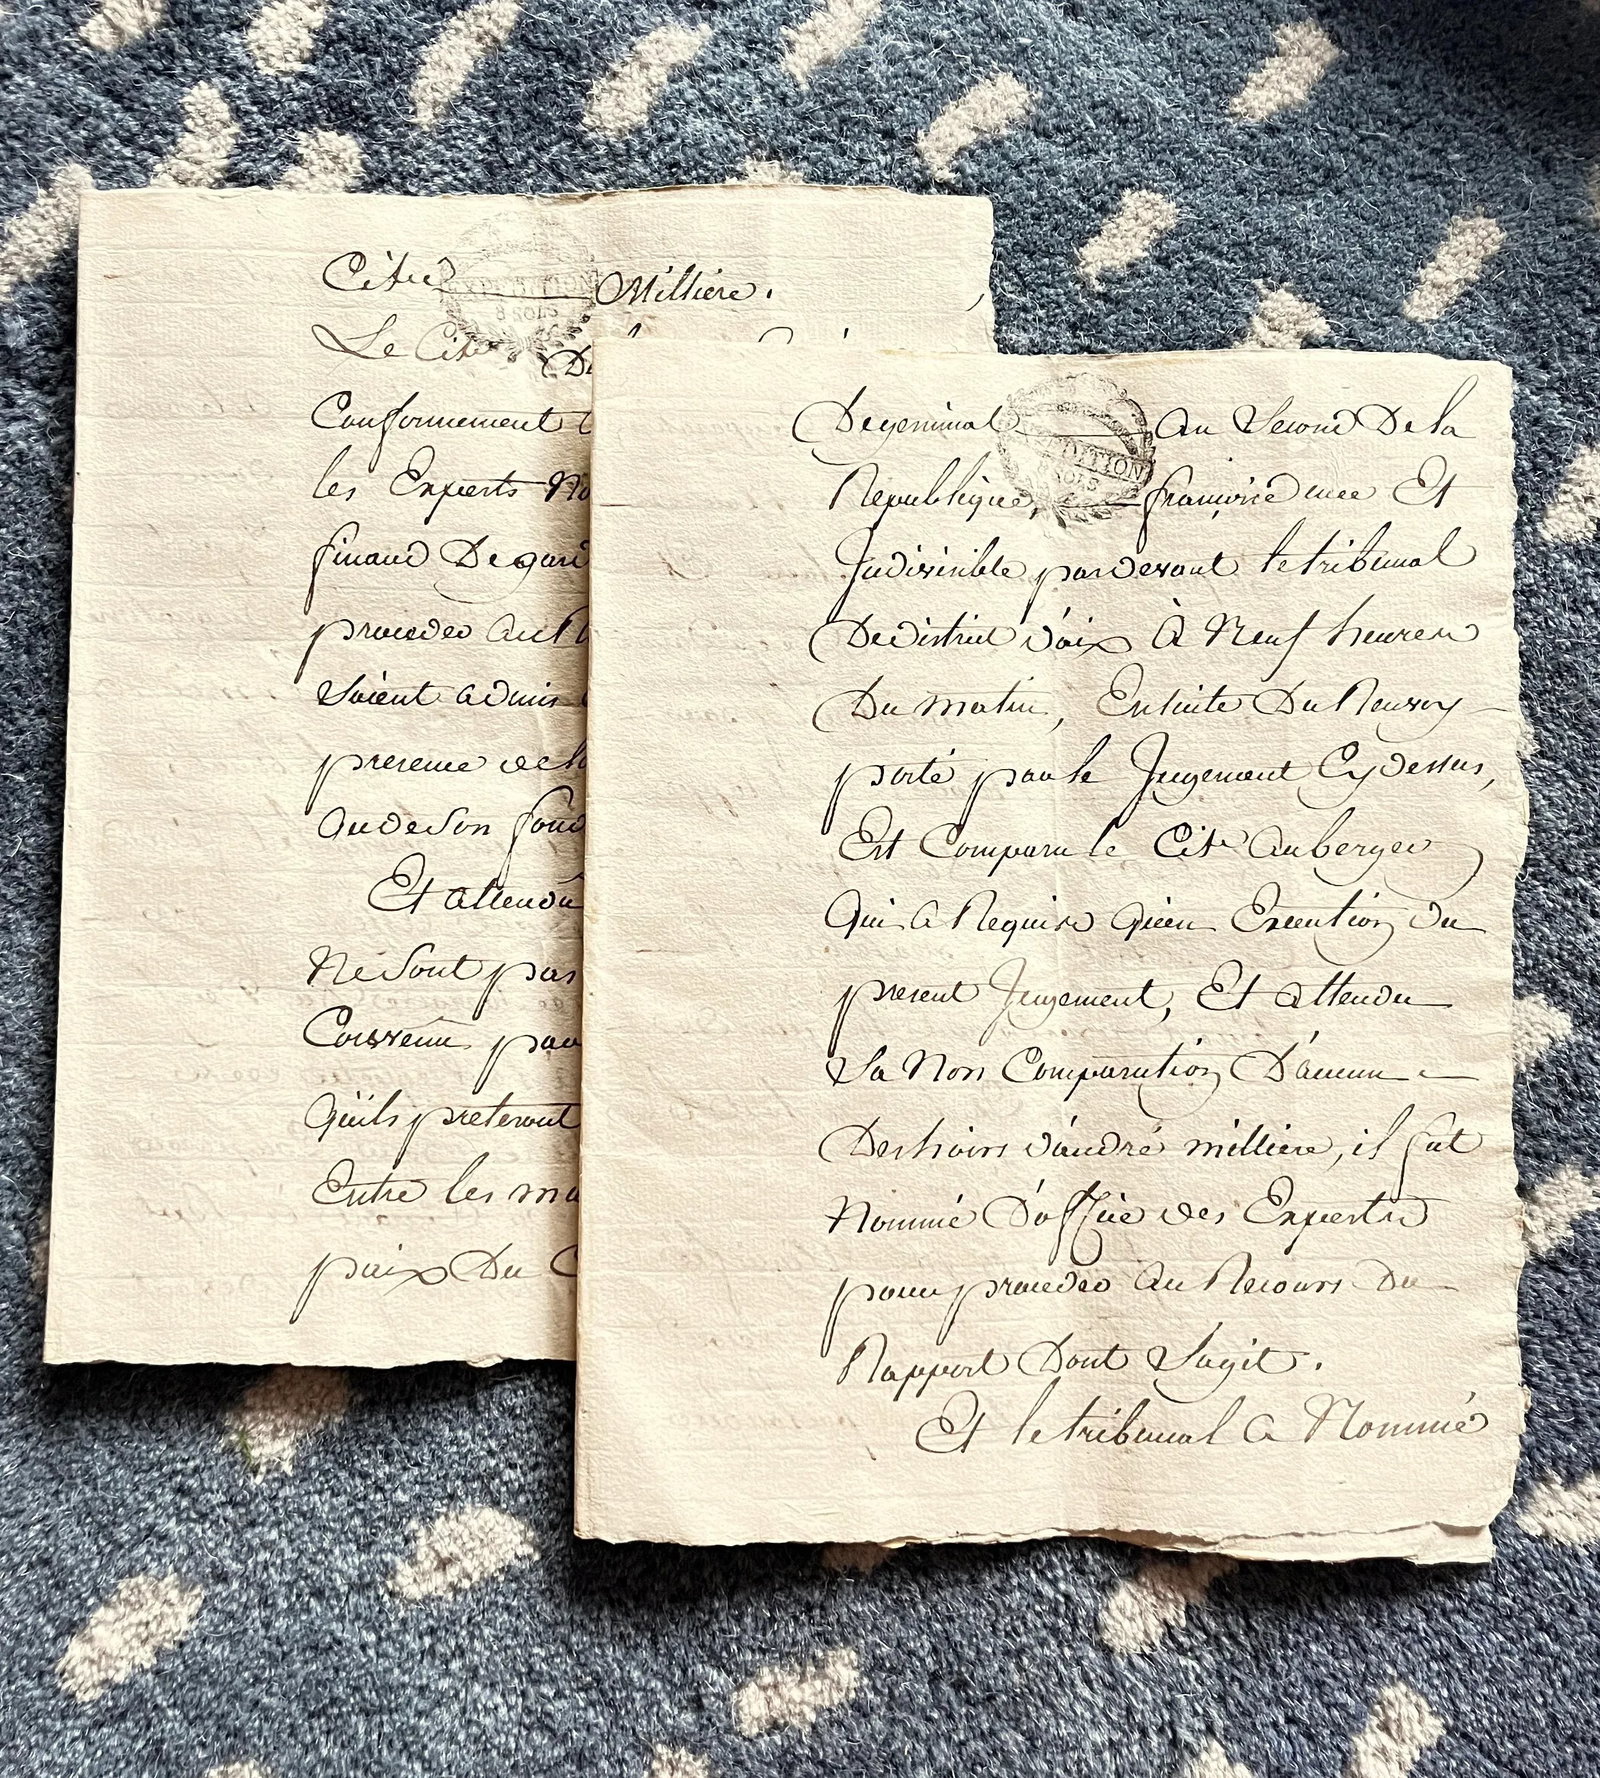 Cite Millière.
EXPEDITION
8 SOLS
Le Cite De
Conformement
les Experts No
finaud De gard
proceder au R
Soient admis
presence de la
Ou de Son fond
Et attendu
Ne Sont pas
Convenu par
Qu'ils preteront
Entre les ma
paix Du C
De germinal an Second De la
EXPEDITION
8 SOLS
Republique, francoise une Et
Indivisible, par devant le tribunal
De district d'aix à Neuf heures
Du matin, Ensuite Du Renvoy
porté par le Jugement Cy dessus,
Est Comparu le Citn Auberger
Qui a Requis Qu'en Execution du
present Jugement, Et attendu
La Non Comparution D'aucun
Des hoirs d'andré millière, il fut
Nommé D'office des Experts
pour proceder au Recours Du
Rapport Dont S'agit.
Et le tribunal a Nommé